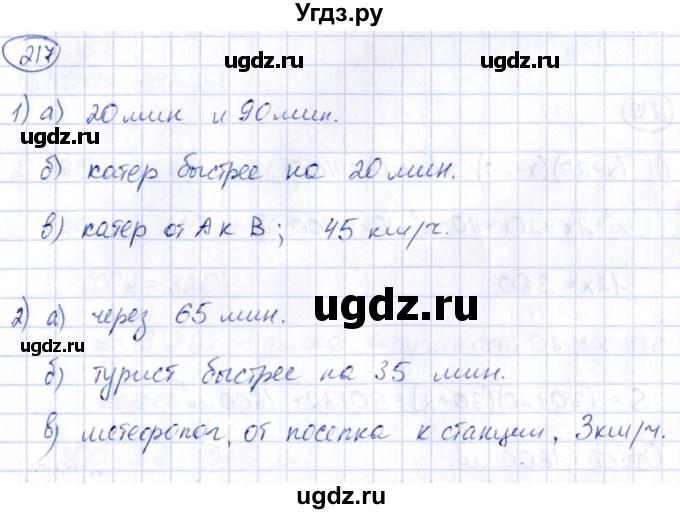 Угдз.ру
217
ugdz.ru ugdz.ru
1) а) 20 мин и 90 мин.
ugdz.ru
б) катер быстрее на 20 мин.
в) катер от А к В; 45 км/ч.
ugdz.ru
2) а) через 65 мин.
ugdz.ru
б) турист быстрее на 35 мин.
в) метеоролог, от поселка к станции, 3км/ч.
ugdz.ru ugdz.ru
ugdz.ru